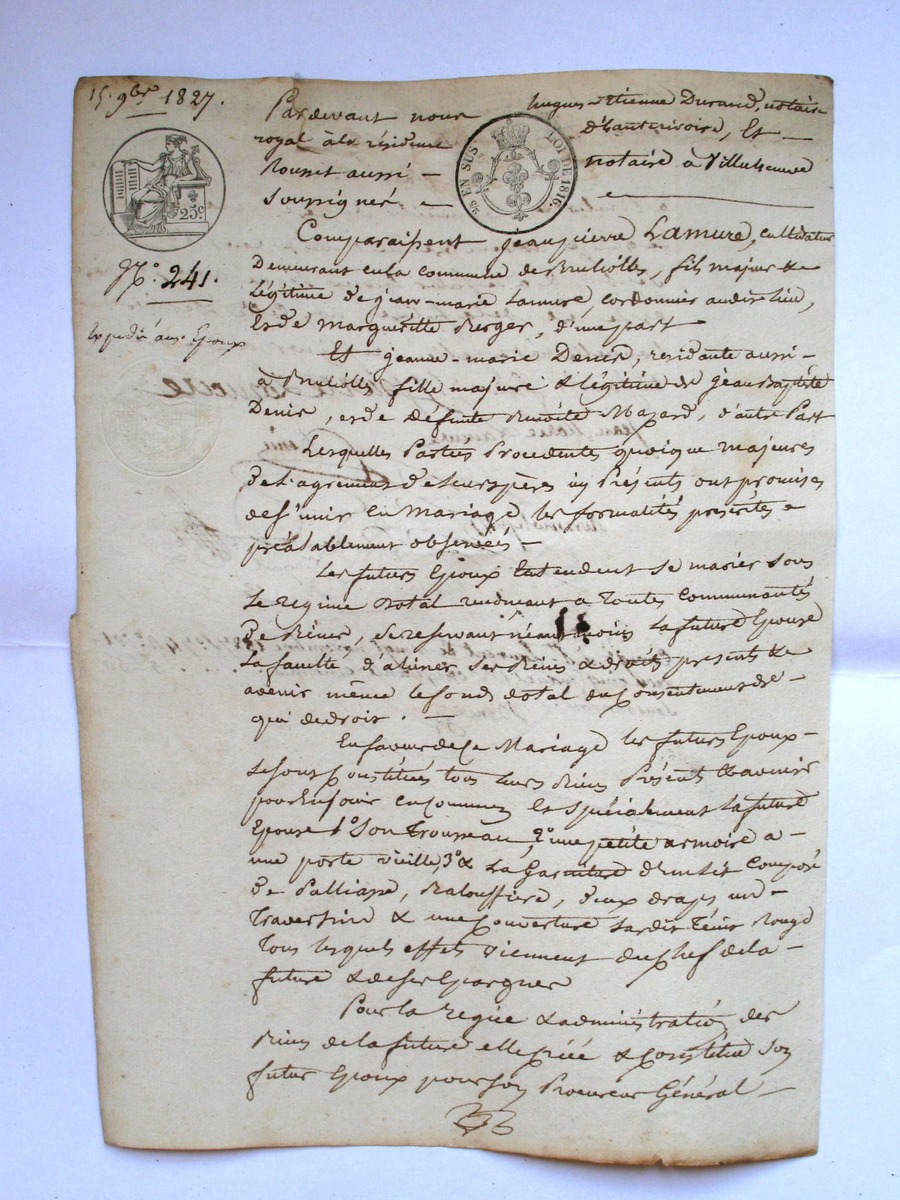 15. 9bre 1827.
Pardevant nous hugues-Etienne Durand, notaire
royal à la résidence d'hauterivoire, Et —
notaire à Villechenève
soussignés —
25 EN SUS
LOI DE 1816.
25c
N°. 241.
Expédié aux Epoux
Comparaissent jeanpierre Lamure, cultivateur
Demeurant en la commune de Brullioles, fils majeur &
légitime de jean-marie Lamure, cordonnier audit lieu,
Et de marguerite Berger, d'une part
Et jeanne-marie Denis, résidante aussi —
à Brullioles fille majeure & légitime de jean Baptiste
Denis, et de défunte Benoite Mazard, d'autre Part
Lesquelles Parties Procédentes quoique majeures
de l'agrément de leurs pères icy Présents ont promises
de s'unir en mariage, les formalités prescrites
préalablement observées —
Les futurs Epoux Entendent se marier sous
le régime dotal renonçant a toutes communautés
de Biens, se reservant néanmoins la future Epouse
la faculté d'aliener ses Biens & droits present &
avenir même le fonds dotal du consentement de —
qui de droit. —
En faveur de Ce Mariage les futurs Epoux —
se sont Constitués tous leurs Biens Présent & avenir
pour En jouir en Commun Et spécialement la future
Epouse 1° Son Trousseau, 2° une petite armoire a —
une porte vieille, 3° & La Garniture d'un lit Composé
de Palliasse, Baloufière, deux draps un —
Traversin & une couverture sardis teint Rouge
Tous lesquels effets viennent du chef de la —
future & de ses Epargnes
Pour la Regie & administration des
Biens de la future elle créé & constitue son
futur Epoux pour son Procureur Général —